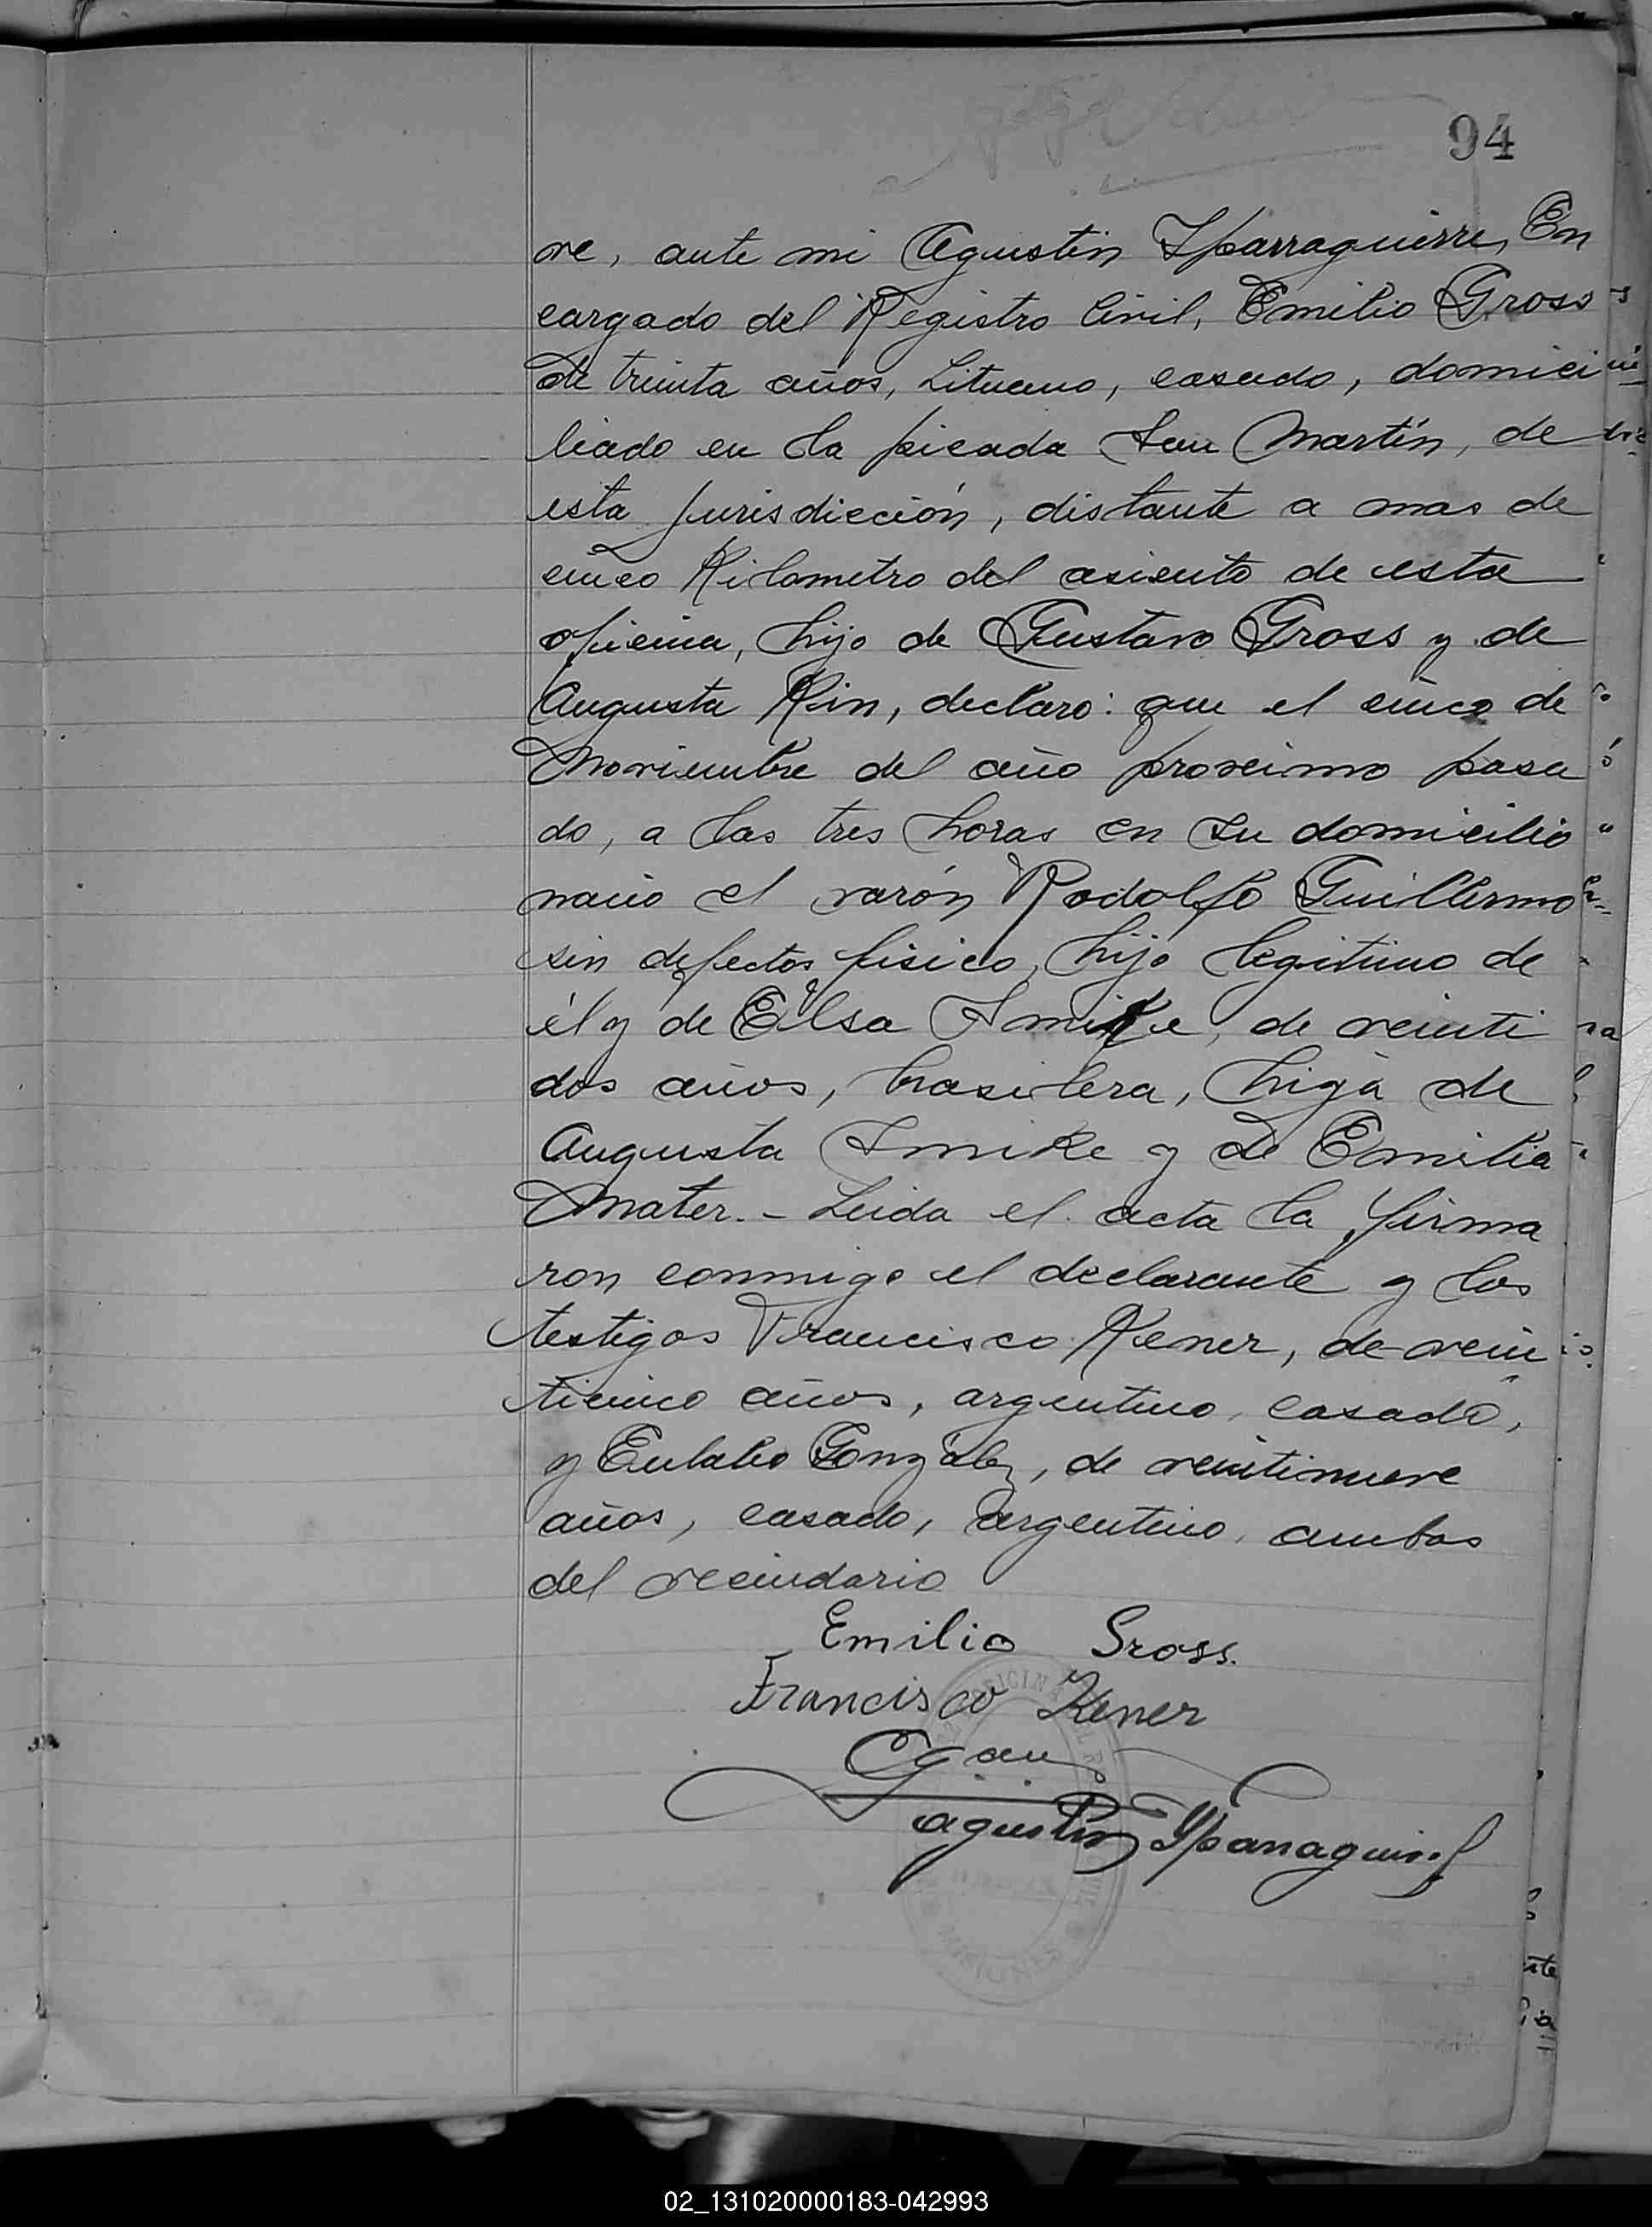 94
ve, ante mi Agustin Yparraguirre, En
cargado del Registro Civil, Emilio Gross
de treinta años, Lituano, casado, domici
liado en la picada San Martín, de
esta jurisdicción, distante a mas de
cinco Kilometro del asiento de esta
oficina, hijo de Gustavo Gross y de
Augusta Kin, declaro: que el cinco de
Noviembre del año proximo pasa
do, a las tres horas en su domicilio
nació el varón Rodolfo Guillermo
sin defectos fisico, hijo legitimo de
él y de Elsa Smike, de veinti
dos años, brasilera, hija de
Augusta Smike y de Emilia
Mater.- Leida el acta la firma
ron conmigo el declarante y los
testigos Francisco Kener, de vein
ticinco años, argentino, casado,
y Eulalio González, de veintinueve
años, casado, argentino, ambos
del vecindario
Emilio Gross.
Francisco Kener
Agustin Yparraguirre
OFICINA
MISIONES
02_131020000183-042993